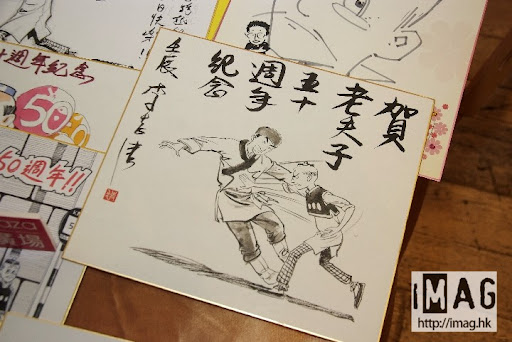 賀
老夫子
五十
週年
紀念
壬辰
十週年紀念
50
50週年!!
iMAG
http://imag.hk